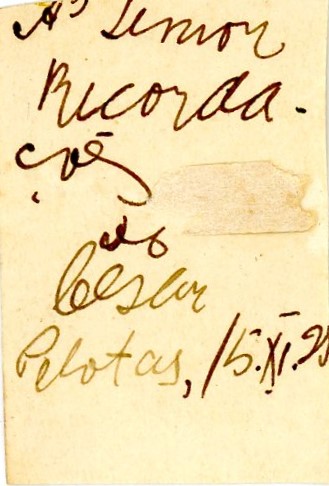 Ao Senior
Recorda-
ções
do
Cesar
Pelotas, 15.XI.9